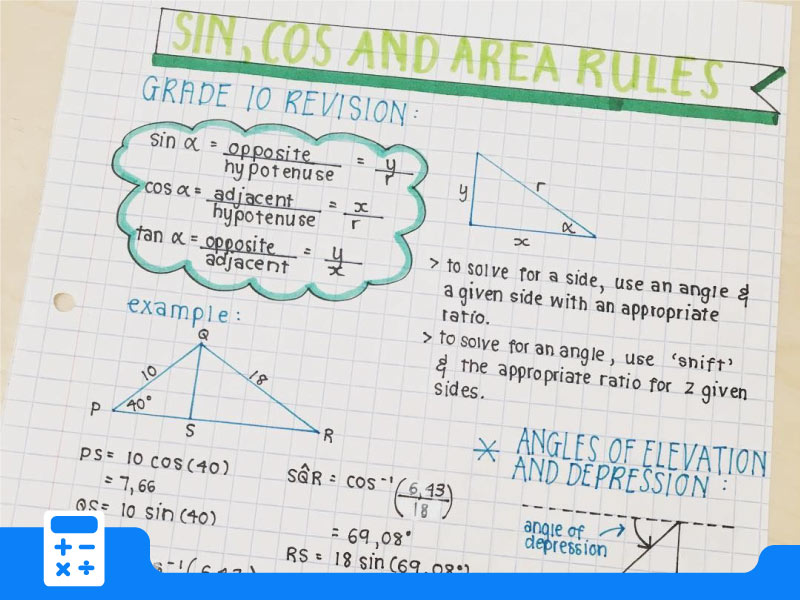 SIN, COS AND AREA RULES
GRADE 10 REVISION:
sin α = opposite/hypotenuse = y/r
cos α = adjacent/hypotenuse = x/r
tan α = opposite/adjacent = y/x
y
r
x
α
> to solve for a side, use an angle &
a given side with an appropriate
ratio.
> to solve for an angle, use 'shift'
& the appropriate ratio for 2 given
sides.
example:
Q
10
18
P
40°
S
R
PS = 10 cos(40)
= 7,66
QS = 10 sin(40)
SQ̂R = cos⁻¹(6,43/18)
= 69,08°
RS = 18 sin(69,08°)
* ANGLES OF ELEVATION
AND DEPRESSION:
angle of
depression